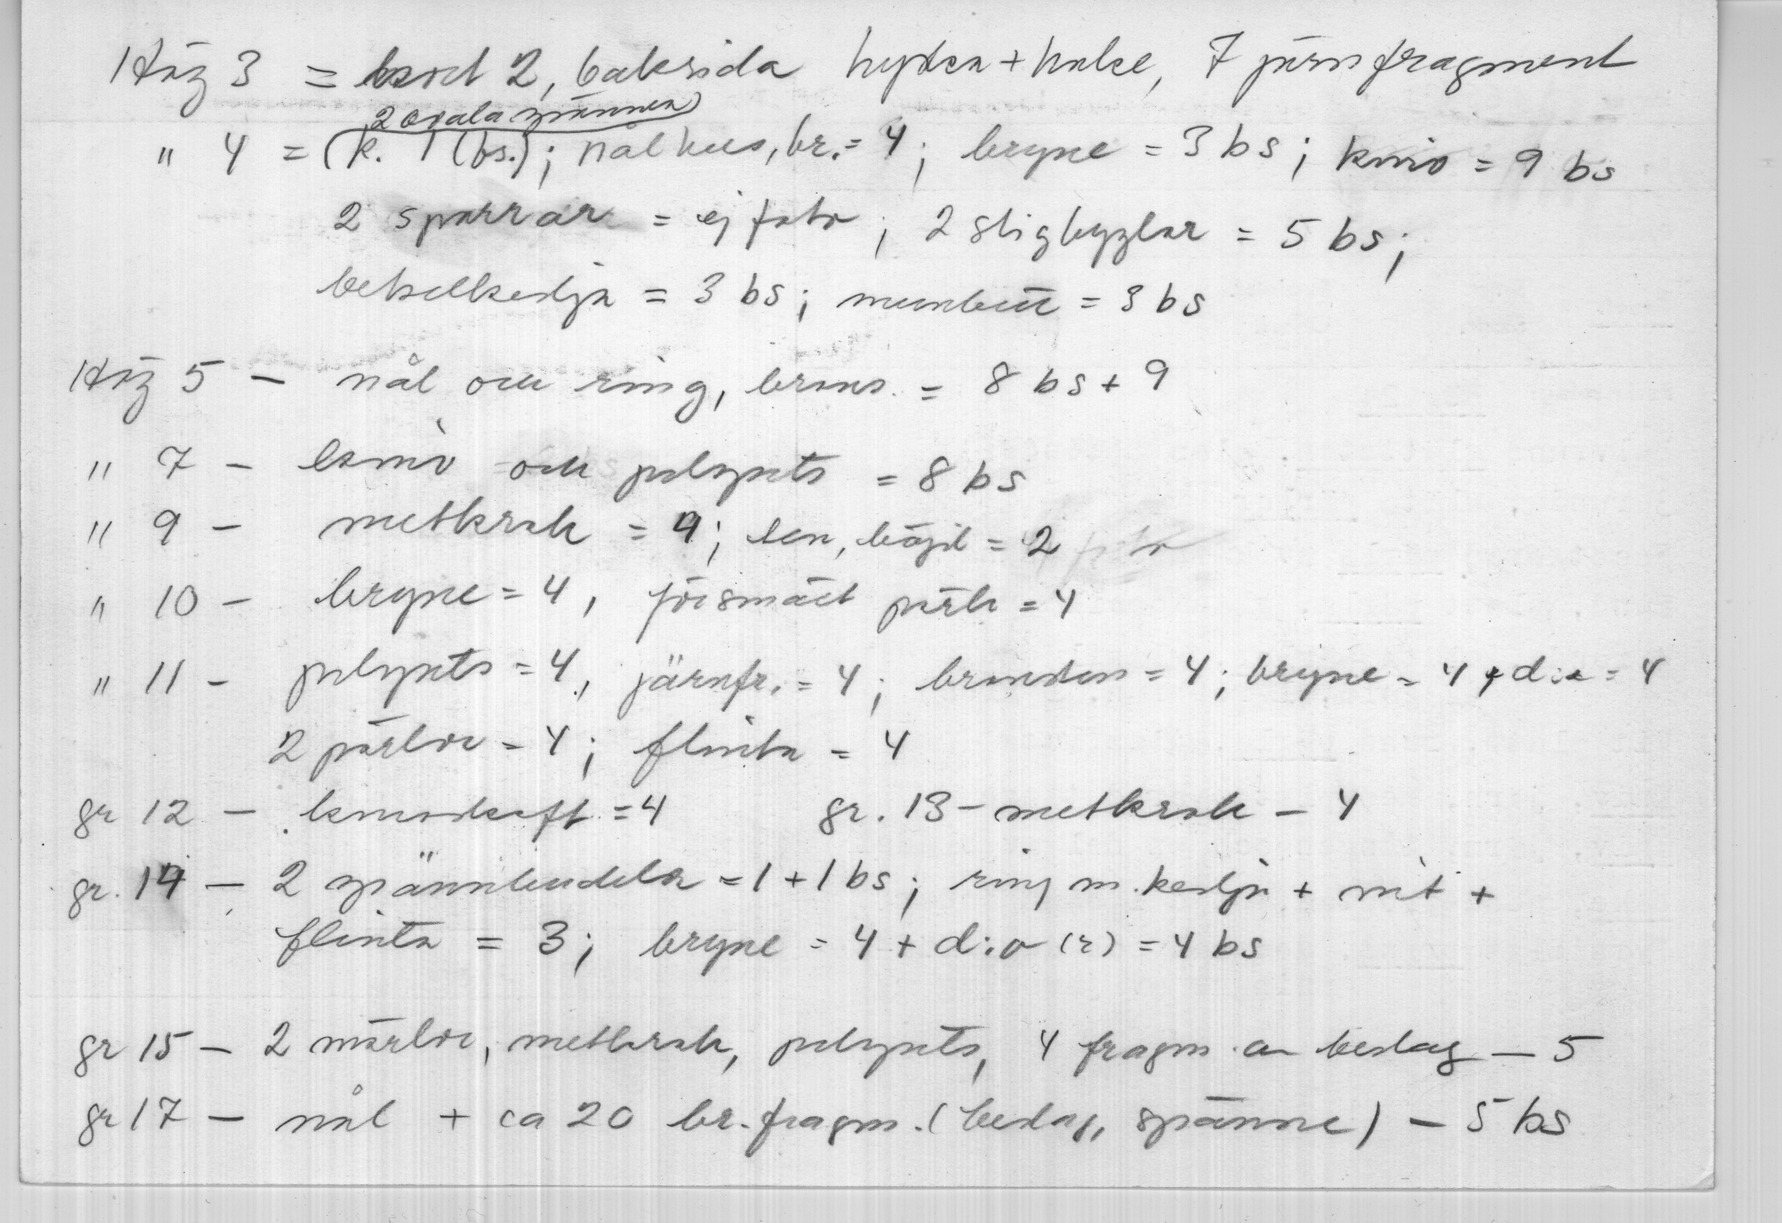 Hög 3 = kort 2, baksida hylsa + hake, 7 järnfragment
2 ovala spännen
" 4 = (k. 1 (bs.); nålhus, br. = 4; bryne = 3 bs; kniv = 9 bs
2 sporrar = ej foto; 2 stigbyglar = 5 bs;
betselkedja = 3 bs; munbett = 3 bs
Hög 5 – nål och ring, brons. = 8 bs + 9
" 7 – kniv och pilspets = 8 bs
" 9 – metkrok = 4; ten, böjd = 2 foto
" 10 – bryne = 4, försmält pärla = 4
" 11 – pilspets = 4, järnfr. = 4; brodden = 4; bryne = 4 + d:o = 4
2 pärlor = 4; flinta = 4
gr 12 – knivskaft = 4 gr. 13 – metkrok – 4
gr. 14 – 2 spännbucklor = 1 + 1 bs; ring m. kedja + nit +
flinta = 3; bryne = 4 + d:o (2) = 4 bs
gr 15 – 2 märlor, metkrok, pilspets, 4 fragm. av beslag – 5
gr 17 – nål + ca 20 br. fragm. (beslag, spänne) – 5 bs